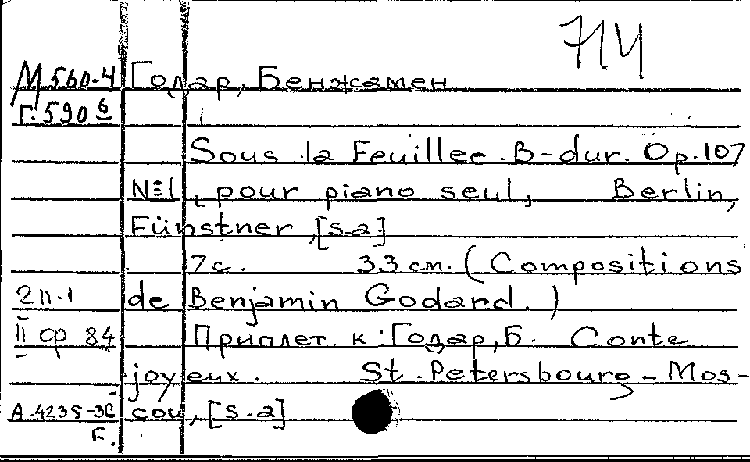 714
М560-4 Годар, Бенжамен
Г.590 6
Sous la Feuillee. B-dur. Op.107
N=1, pour piano seul, Berlin,
Fünstner, [s.a]
7с. 33 см. (Compositions
2п.1 de Benjamin Godard.)
II ср 84 Приплет. к: Годар, Б. Conte
joyeux. St.-Petersbourg-Mos-
А.4235-3С cou, [s.a]
Г.